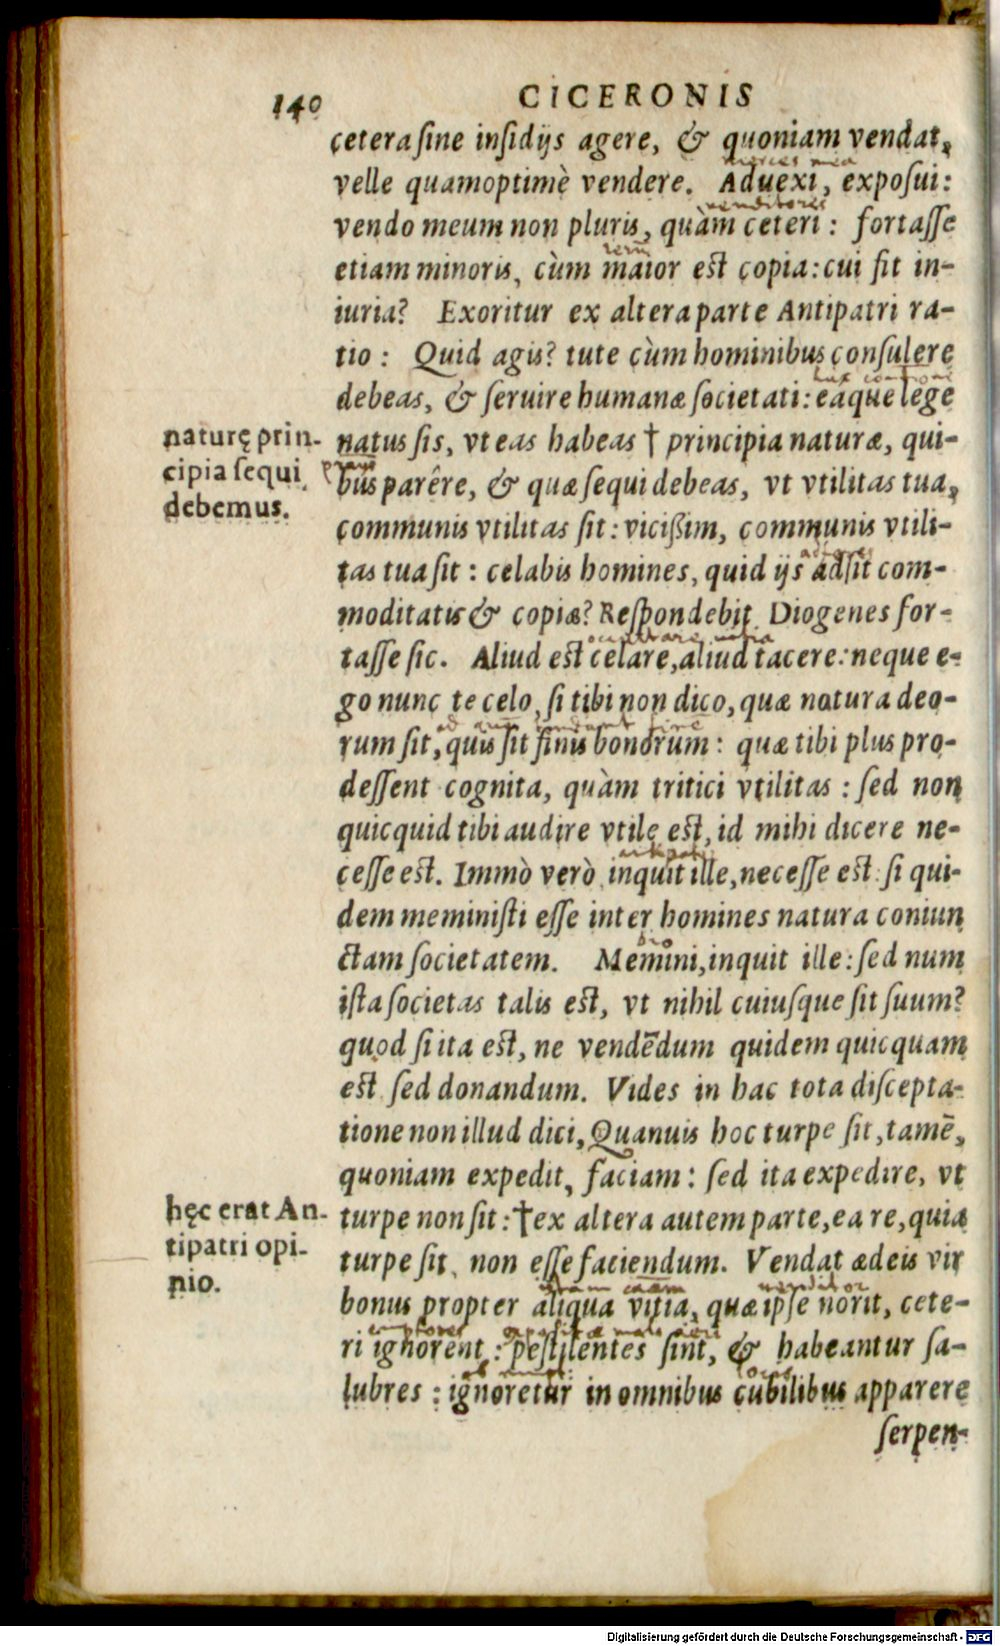 140
CICERONIS
cetera sine insidijs agere, & quoniam vendat,
merces mea
velle quamoptimè vendere. Aduexi, exposui:
venditores
vendo meum non pluris, quàm ceteri: fortasse
rerū
etiam minoris, cùm maior est copia: cui fit in-
iuria? Exoritur ex altera parte Antipatri ra-
tio: Quid agis? tute cùm hominibus consulere
debeas, & seruire humanæ societati: eaque lege
naturę prin-
cipia sequi
debemus.
natus sis, vt eas habeas † principia naturæ, qui-
bus parêre, & quæ sequi debeas, vt vtilitas tua,
communis vtilitas sit: vicißim, communis vtili-
tas tua sit: celabis homines, quid ijs adsit com-
moditatis & copiæ? Respondebit Diogenes for-
tasse sic. Aliud est celare, aliud tacere: neque e-
go nunc te celo, si tibi non dico, quæ natura deo-
rum sit, quis sit finis bonorum: quæ tibi plus pro-
dessent cognita, quàm tritici vtilitas: sed non
quicquid tibi audire vtile est, id mihi dicere ne-
cesse est. Immò verò inquit ille, necesse est: si qui-
dem meministi esse inter homines natura coniun
dio
ctam societatem. Memini, inquit ille: sed num
ista societas talis est, vt nihil cuiusque sit suum?
quod si ita est, ne vendēdum quidem quicquam
est sed donandum. Vides in hac tota discepta-
tione non illud dici, Quanuis hoc turpe sit, tamē,
quoniam expedit, faciam: sed ita expedire, vt
hęc erat An-
tipatri opi-
nio.
turpe non sit: † ex altera autem parte, ea re, quia
turpe sit, non esse faciendum. Vendat ædeis vir
venditor
bonus propter aliqua vitia, quæ ipse norit, cete-
emptores
ri ignorent: pestilentes sint, & habeantur sa-
lubres: ignoretur in omnibus cubilibus apparere
serpen-
Digitalisierung gefördert durch die Deutsche Forschungsgemeinschaft - DFG